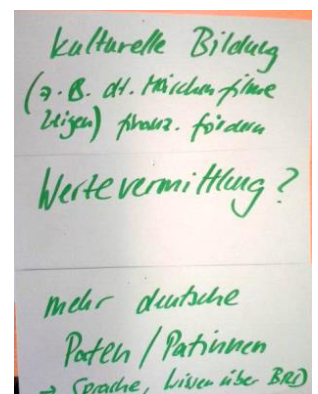 kulturelle Bildung
(z. B. dt. Märchenfilme
zeigen) finanz. fördern
Wertevermittlung?
mehr deutsche
Paten / Patinnen
→ Sprache, Wissen über BRD